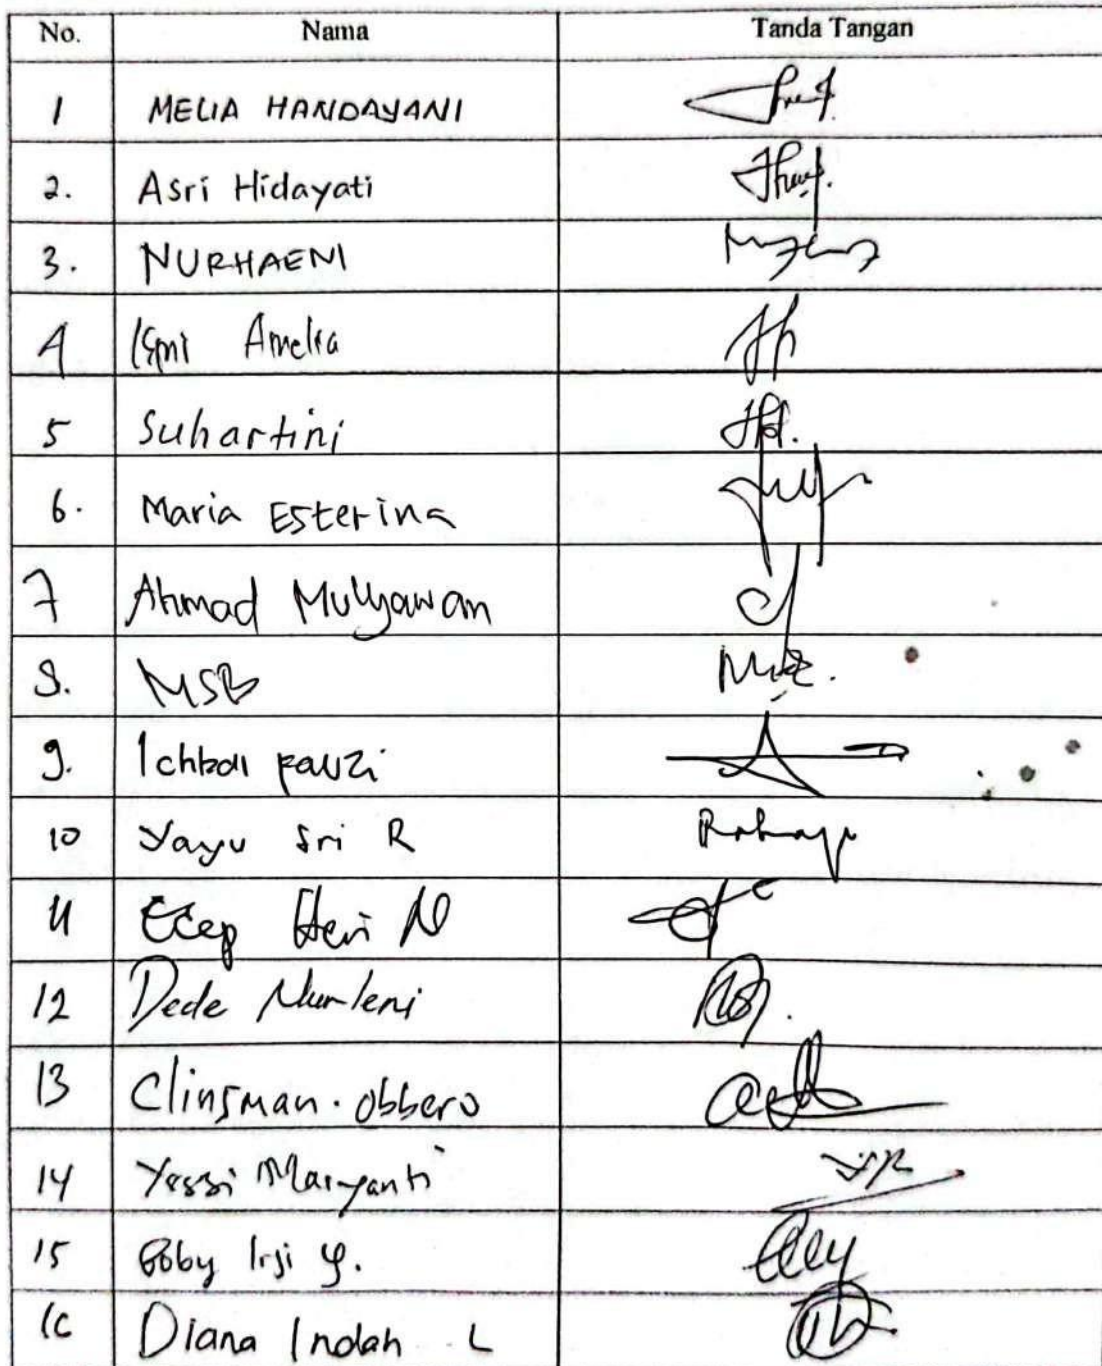 No. Nama Tanda Tangan
1 MELIA HANDAYANI
2. Asri Hidayati
3. NURHAENI
4 Ismi Amelia
5 Suhartini
6. Maria Esterina
7 Ahmad Mulyawan
8. MSB
9. Ichbal Fauzi
10 Yayu Sri R
11 Ecep Heri N
12 Dede Nurleni
13 Clinsman. Obbero
14 Yessi Maryanti
15 Boby Irji Y.
16 Diana Indah L